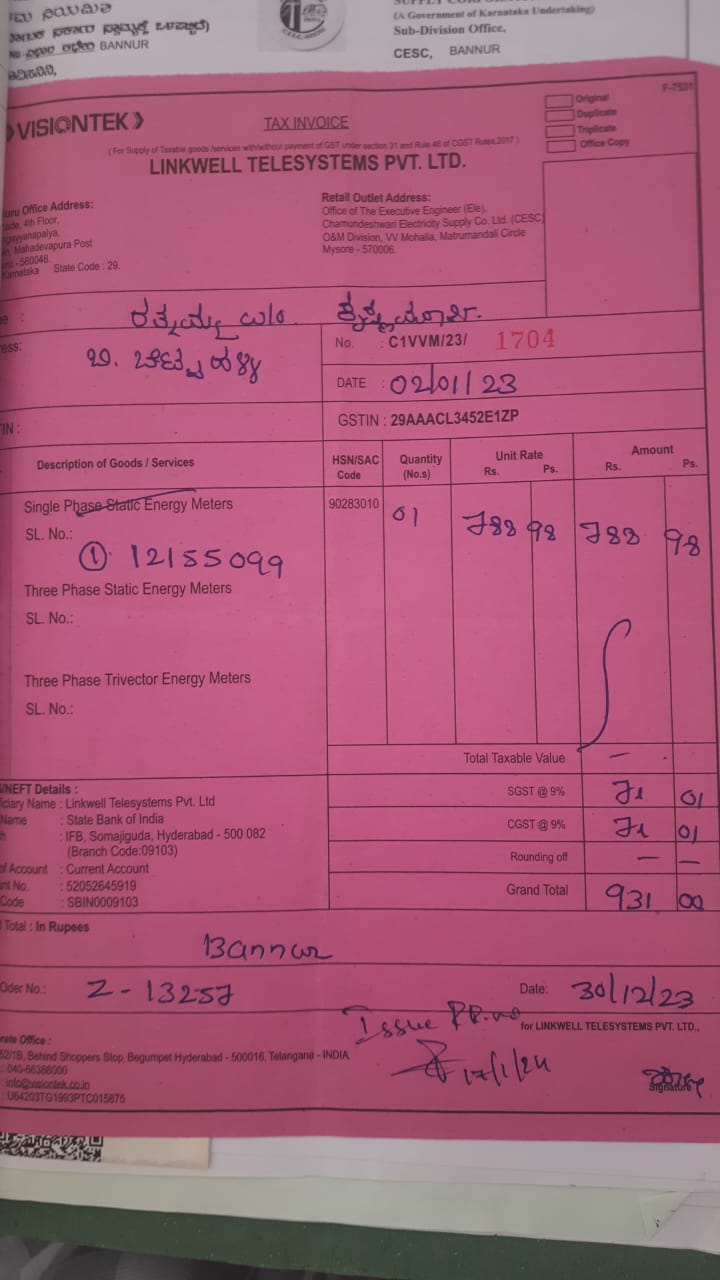 BANNUR
(A Government of Karnataka Undertaking)
Sub-Division Office,
CESC, BANNUR
F-7501
VISIONTEK
TAX INVOICE
Original
Duplicate
Triplicate
Office Copy
( For Supply of Taxable goods /services with/without payment of GST under section 31 and Rule 46 of CGST Rules,2017 )
LINKWELL TELESYSTEMS PVT. LTD.
Office Address:
4th Floor,
Mahadevapura Post
- 560048.
Karnataka State Code : 29.
Retail Outlet Address:
Office of The Executive Engineer (Ele),
Chamundeshwari Electricity Supply Co. Ltd. (CESC)
O&M Division, VV Mohalla, Matrumandali Circle
Mysore - 570006.
No. : C1VVM/23/ 1704
DATE : 02/01/23
GSTIN : 29AAACL3452E1ZP
Description of Goods / Services
HSN/SAC Code
Quantity (No.s)
Unit Rate Rs. Ps.
Amount Rs. Ps.
Single Phase Static Energy Meters 90283010 01 788 98 788 98
SL. No.:
① 12155099
Three Phase Static Energy Meters
SL. No.:
Three Phase Trivector Energy Meters
SL. No.:
Total Taxable Value —
SGST @ 9% 71 01
CGST @ 9% 71 01
Rounding off — —
Grand Total 931 00
/NEFT Details :
Name : Linkwell Telesystems Pvt. Ltd
Name : State Bank of India
: IFB, Somajiguda, Hyderabad - 500 082
(Branch Code:09103)
Account : Current Account
No. : 52052645919
Code : SBIN0009103
Total : In Rupees
Bannur
Oder No.: Z-13257
Date: 30/12/23
Issue
for LINKWELL TELESYSTEMS PVT. LTD.,
17/1/24
Signature
Office :
Behind Shoppers Stop, Begumpet Hyderabad - 500016. Telangana - INDIA
: 040-66388000
: info@visiontek.co.in
: U64203TG1993PTC015875